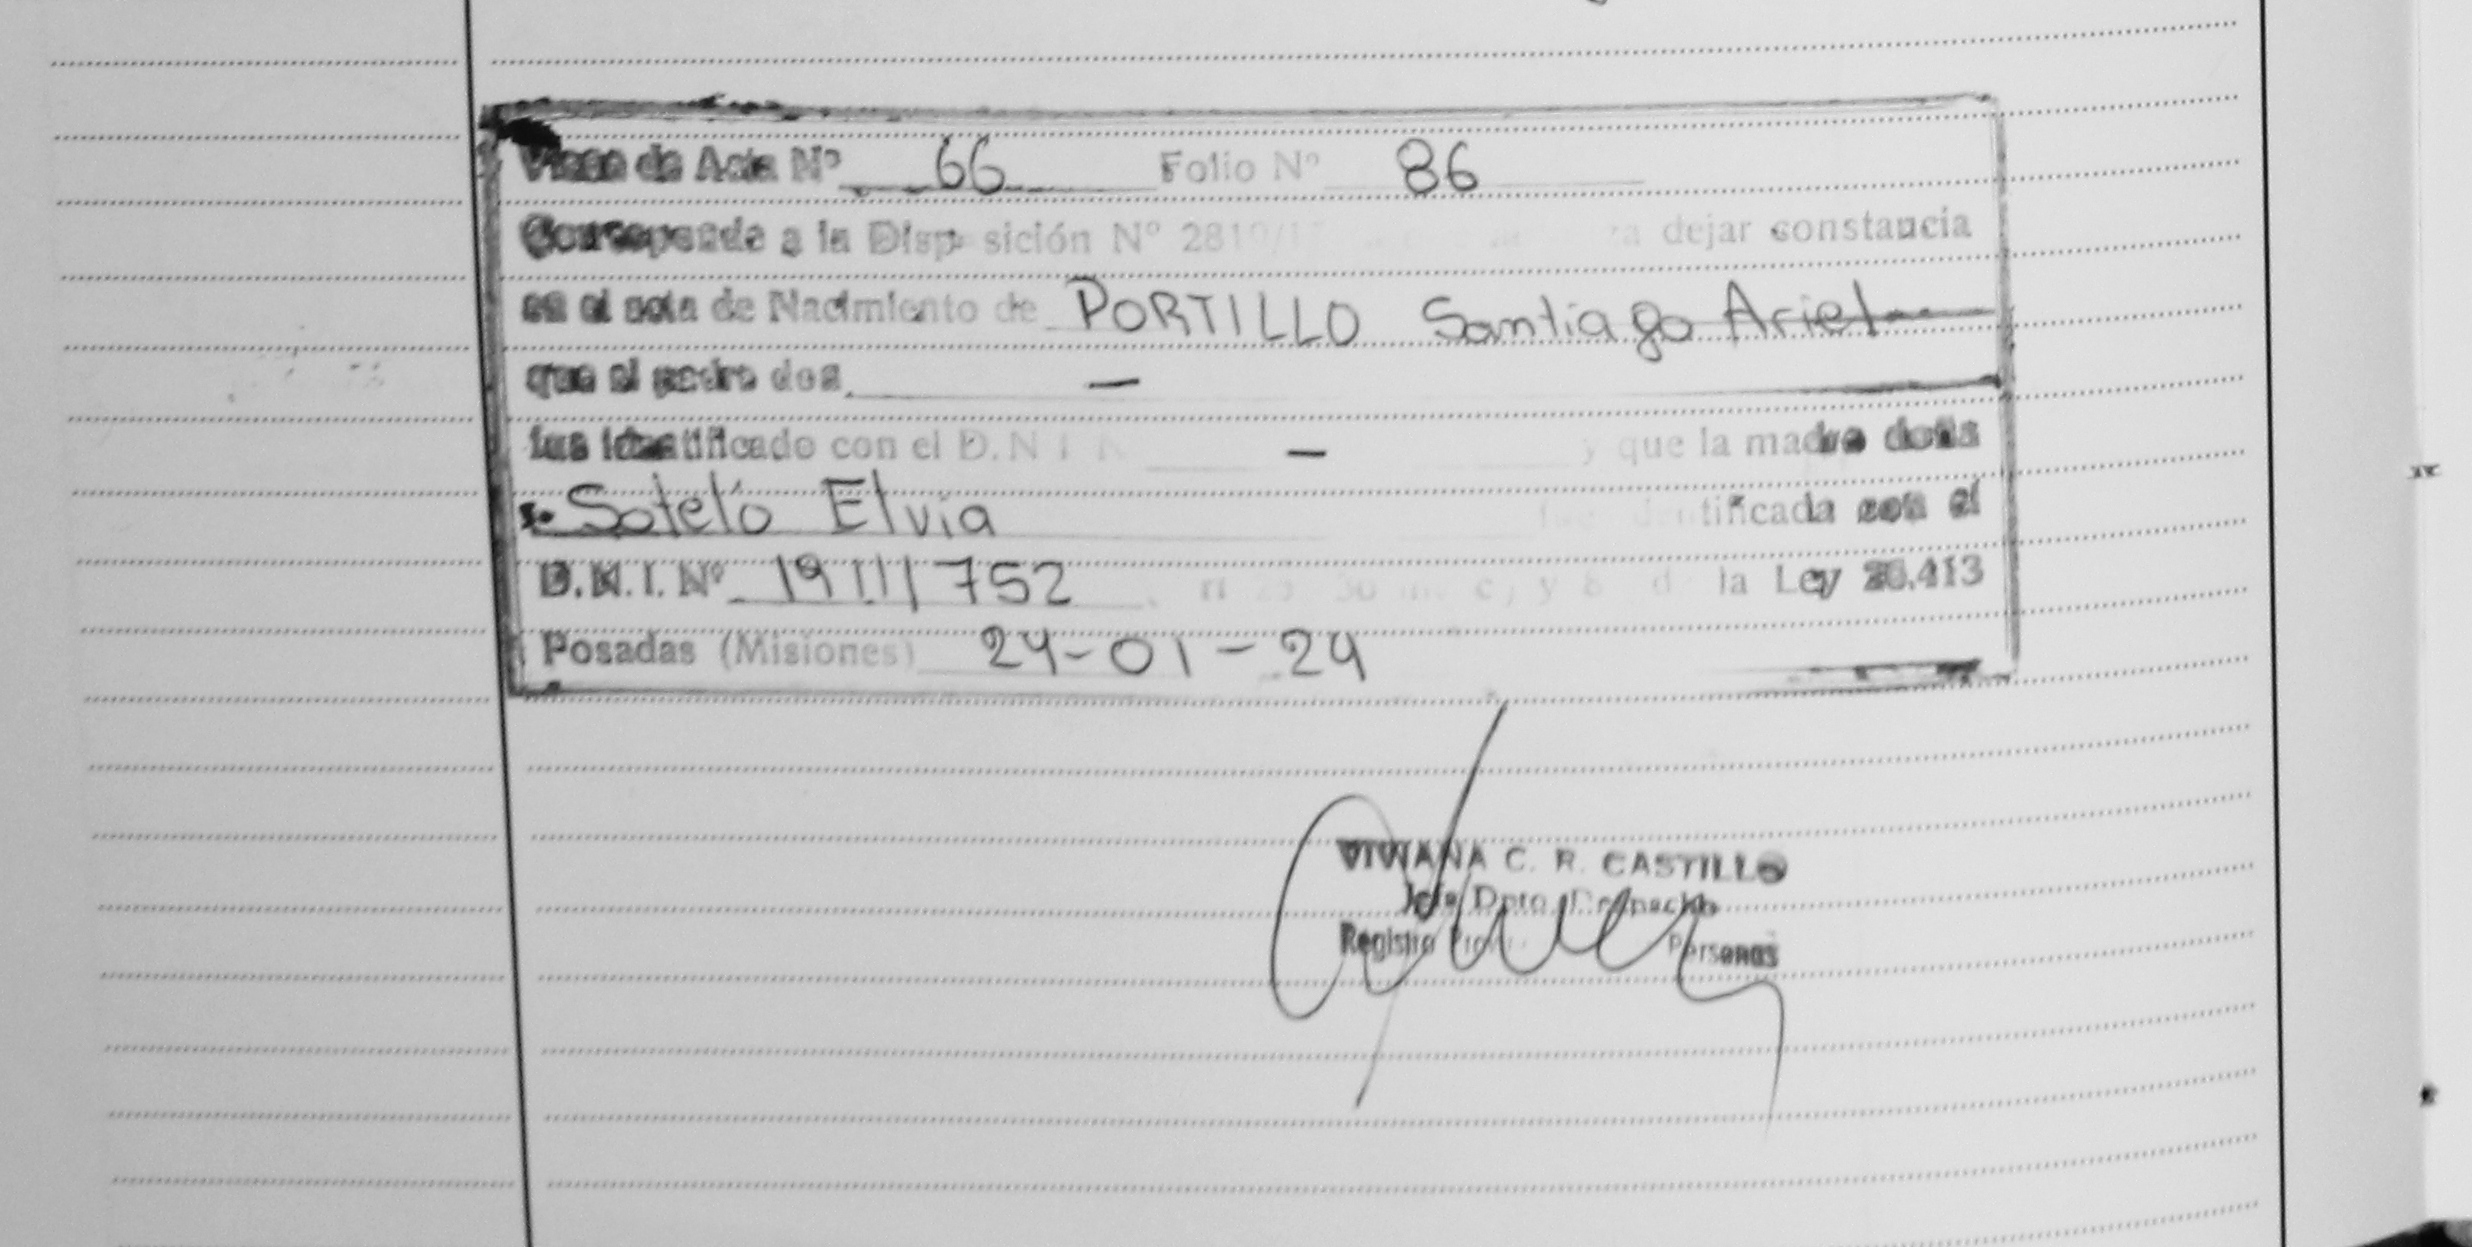 Viene de Acta Nº 66 Folio Nº 86
Corresponde a la Disposición Nº 2819/1 dejar constancia
en el acta de Nacimiento de PORTILLO Santiago Ariel
que el padre don —
fue identificado con el D.N.I. N — y que la madre doña
Sotelo Elvia fue identificada con el
D.N.I. Nº 19111752 la Ley 26.413
Posadas (Misiones) 24-01-24
VIVIANA C. R. CASTILLO
Jefe Dpto. Despacho
Registro Personas